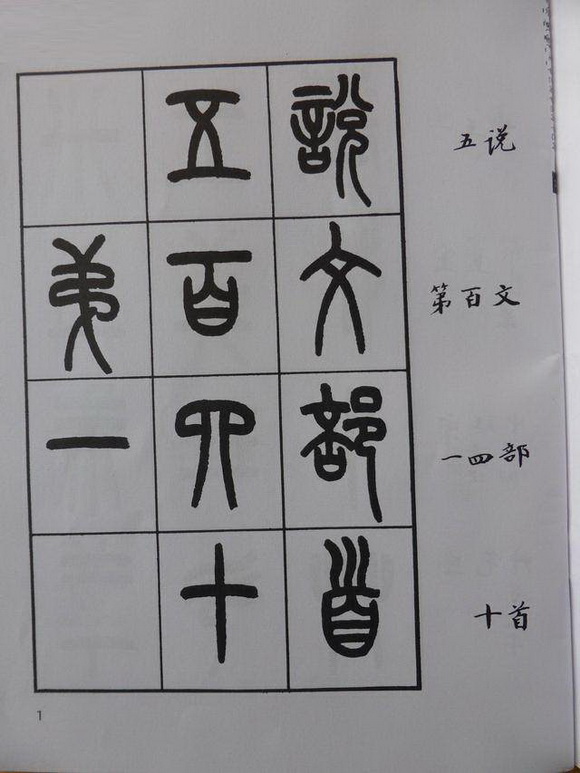 說文部首
五百四十
弟一
五说
第百文
一四部
十首
1